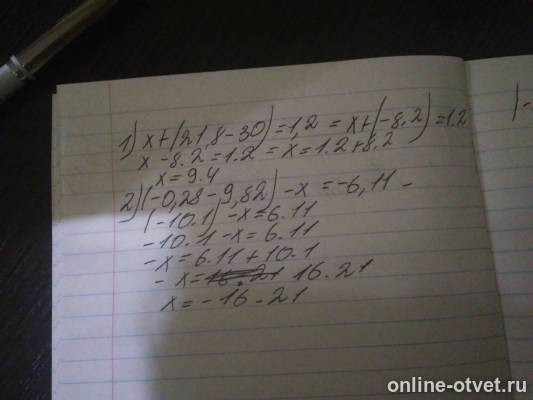 1) x+(21,8-30)=1,2 = x+(-8.2)=1.2
x-8.2=1.2 = x=1.2+8.2
x=9.4
2) (-0,28-9,82)-x=-6,11-
(-10.1)-x=6.11
-10.1-x=6.11
-x=6.11+10.1
-x=16.21 16.21
x=-16.21
online-otvet.ru